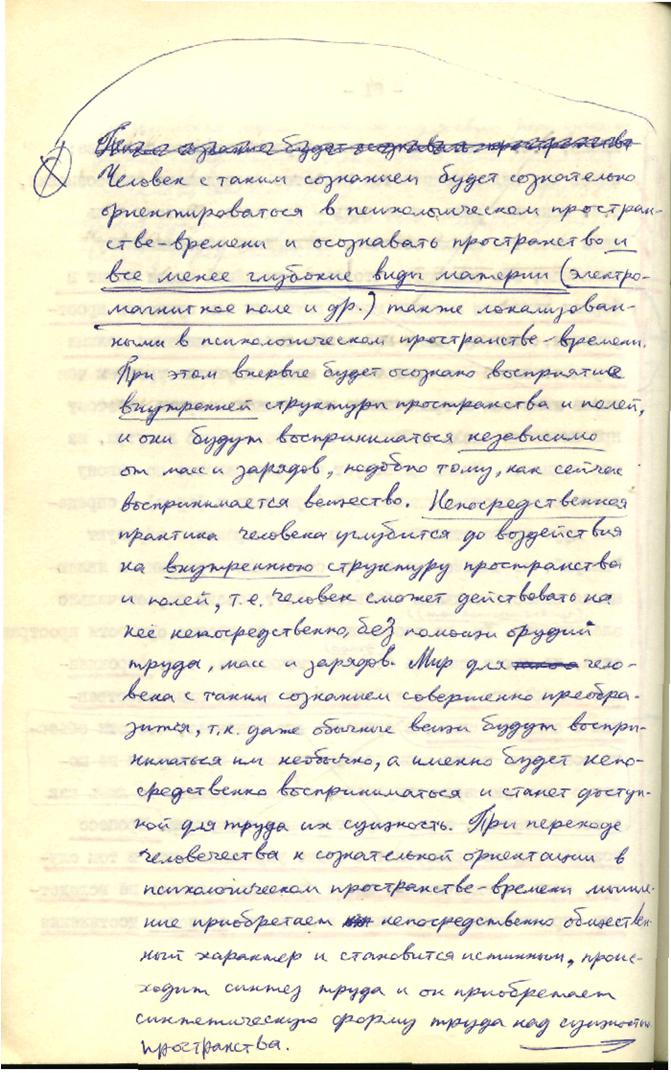 Человек с таким сознанием будет сознательно
ориентироваться в психологическом простран-
стве-времени и осознавать пространство и
все менее глубокие виды материи (электро-
магнитное поле и др.) также локализован-
ными в психологическом пространстве-времени.
При этом впервые будет осознано восприятие
внутренней структуры пространства и полей,
и они будут восприниматься независимо
от масс и зарядов, подобно тому, как сейчас
воспринимается вещество. Непосредственная
практика человека углубится до воздействия
на внутреннюю структуру пространства
и полей, т.е. человек сможет действовать на
неё непосредственно, без помощи орудий
труда, масс и зарядов. Мир для чело-
века с таким сознанием совершенно преобра-
зится, т.к. даже обычные вещи будут воспри-
ниматься им необычно, а именно будет непо-
средственно восприниматься и станет доступ-
ной для труда их сущность. При переходе
человечества к сознательной ориентации в
психологическом пространстве-времени мышле-
ние приобретает непосредственно обществен-
ный характер и становится истинным, проис-
ходит синтез труда и он приобретает
синтетическую форму труда над сущностью
пространства.